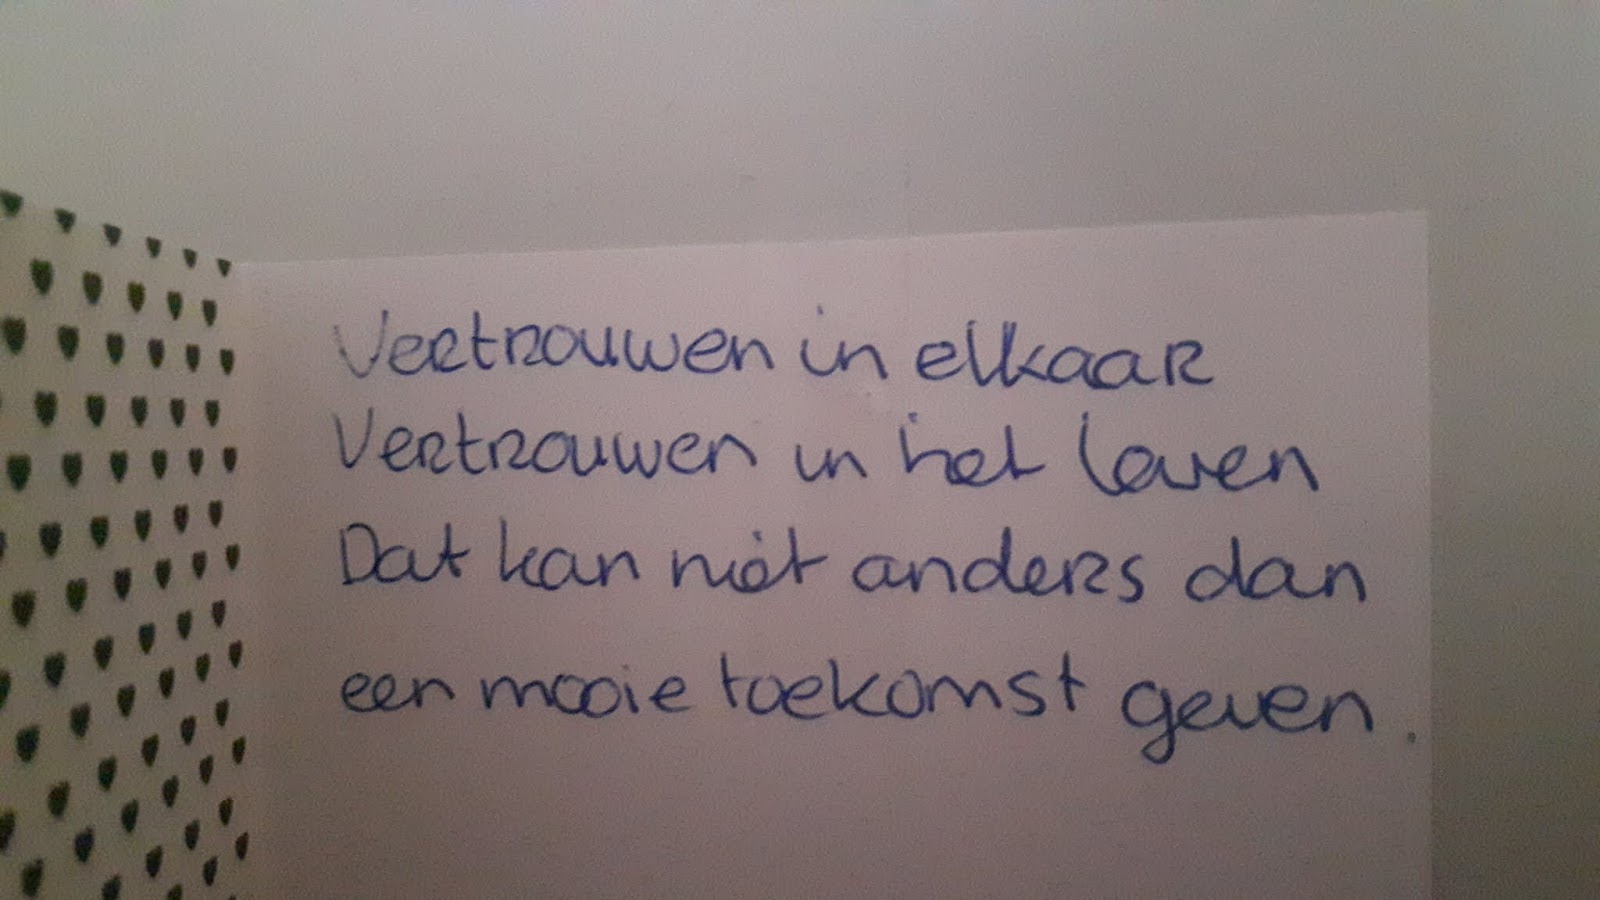 Vertrouwen in elkaar
Vertrouwen in het leven
Dat kan niet anders dan
een mooie toekomst geven.